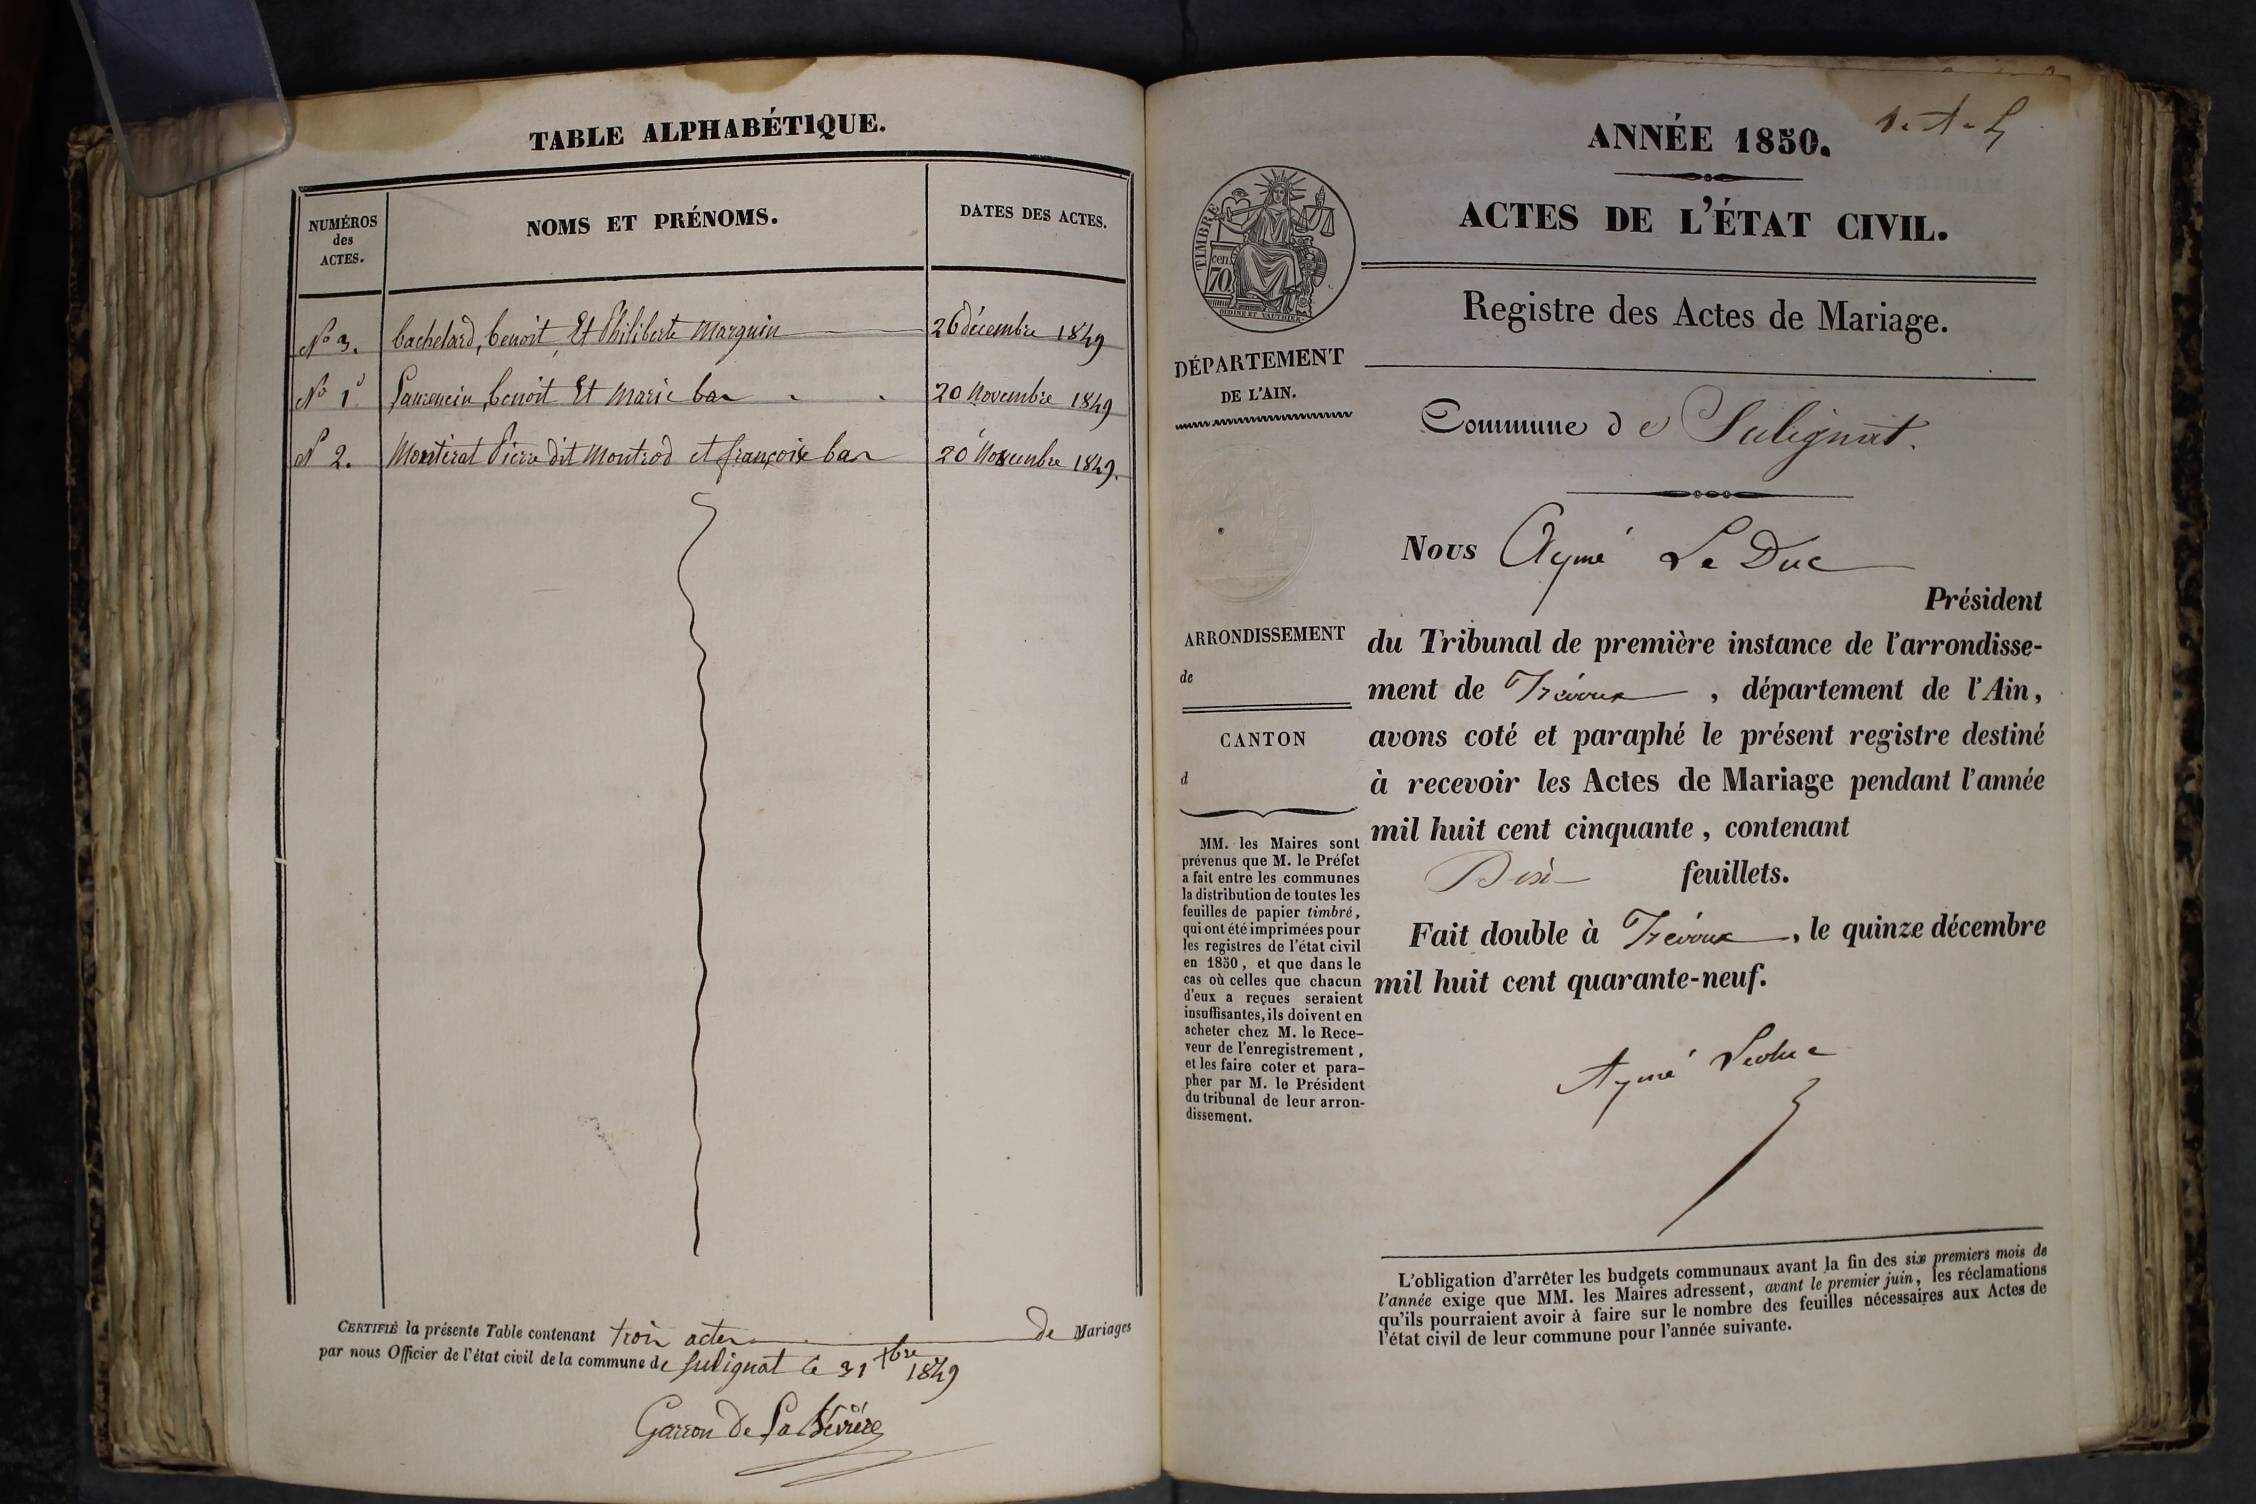 TABLE ALPHABÉTIQUE.
NUMÉROS
des
ACTES.
NOMS ET PRÉNOMS.
DATES DES ACTES.
No 3. bachelard, benoit, Et Philiberte Marguin 26 décembre 1849
No 1 Laurencin, benoit Et Marie bar 20 Novembre 1849
N 2. Montirat Pierre dit Montrod et françoise bar 20 Novembre 1849.
CERTIFIÉ la présente Table contenant trois actes de Mariages
par nous Officier de l'état civil de la commune de Sulignat le 31 Xbre 1849
Garron De La Bévière
ANNÉE 1850.
ACTES DE L'ÉTAT CIVIL.
TIMBRE
70 cen.
Registre des Actes de Mariage.
DÉPARTEMENT
DE L'AIN.
Commune de Sulignat.
Nous Aymé Le Duc
Président
ARRONDISSEMENT
de
CANTON
d
du Tribunal de première instance de l'arrondisse-
ment de Trévoux, département de l'Ain,
avons coté et paraphé le présent registre destiné
à recevoir les Actes de Mariage pendant l'année
mil huit cent cinquante, contenant
feuillets.
Fait double à Trévoux, le quinze décembre
mil huit cent quarante-neuf.
Aymé Leduc
MM. les Maires sont
prévenus que M. le Préfet
a fait entre les communes
la distribution de toutes les
feuilles de papier timbré,
qui ont été imprimées pour
les registres de l'état civil
en 1850, et que dans le
cas où celles que chacun
d'eux a reçues seraient
insuffisantes, ils doivent en
acheter chez M. le Rece-
veur de l'enregistrement,
et les faire coter et para-
pher par M. le Président
du tribunal de leur arron-
dissement.
L'obligation d'arrêter les budgets communaux avant la fin des six premiers mois de
l'année exige que MM. les Maires adressent, avant le premier juin, les réclamations
qu'ils pourraient avoir à faire sur le nombre des feuilles nécessaires aux Actes de
l'état civil de leur commune pour l'année suivante.